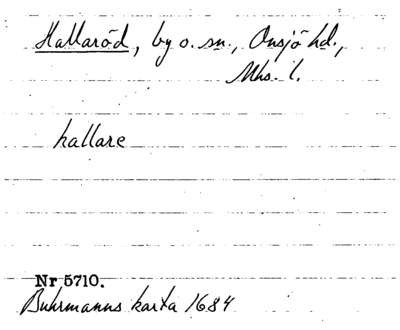 Hallaröd, by o. sn., Onsjö hd.,
Mhs. l.
hallare
Nr 5710.
Buhrmanns karta 1684